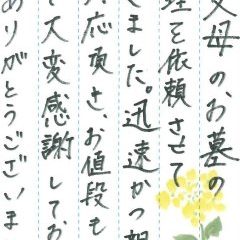 父母のお墓の
理を依頼させて
ました。迅速かつ
応頂き、お値段も
て大変感謝してお
ありがとうございま